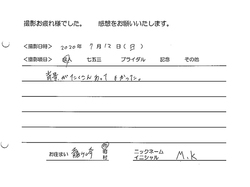 撮影お疲れ様でした。 感想をお願いいたします。
<撮影日時> 2020年 9月12日(日)
<撮影項目> 個人 七五三 ブライダル 記念 その他
背景がたくさんあって よかった。
お住まい 市 町 村 ニックネーム イニシャル M.K